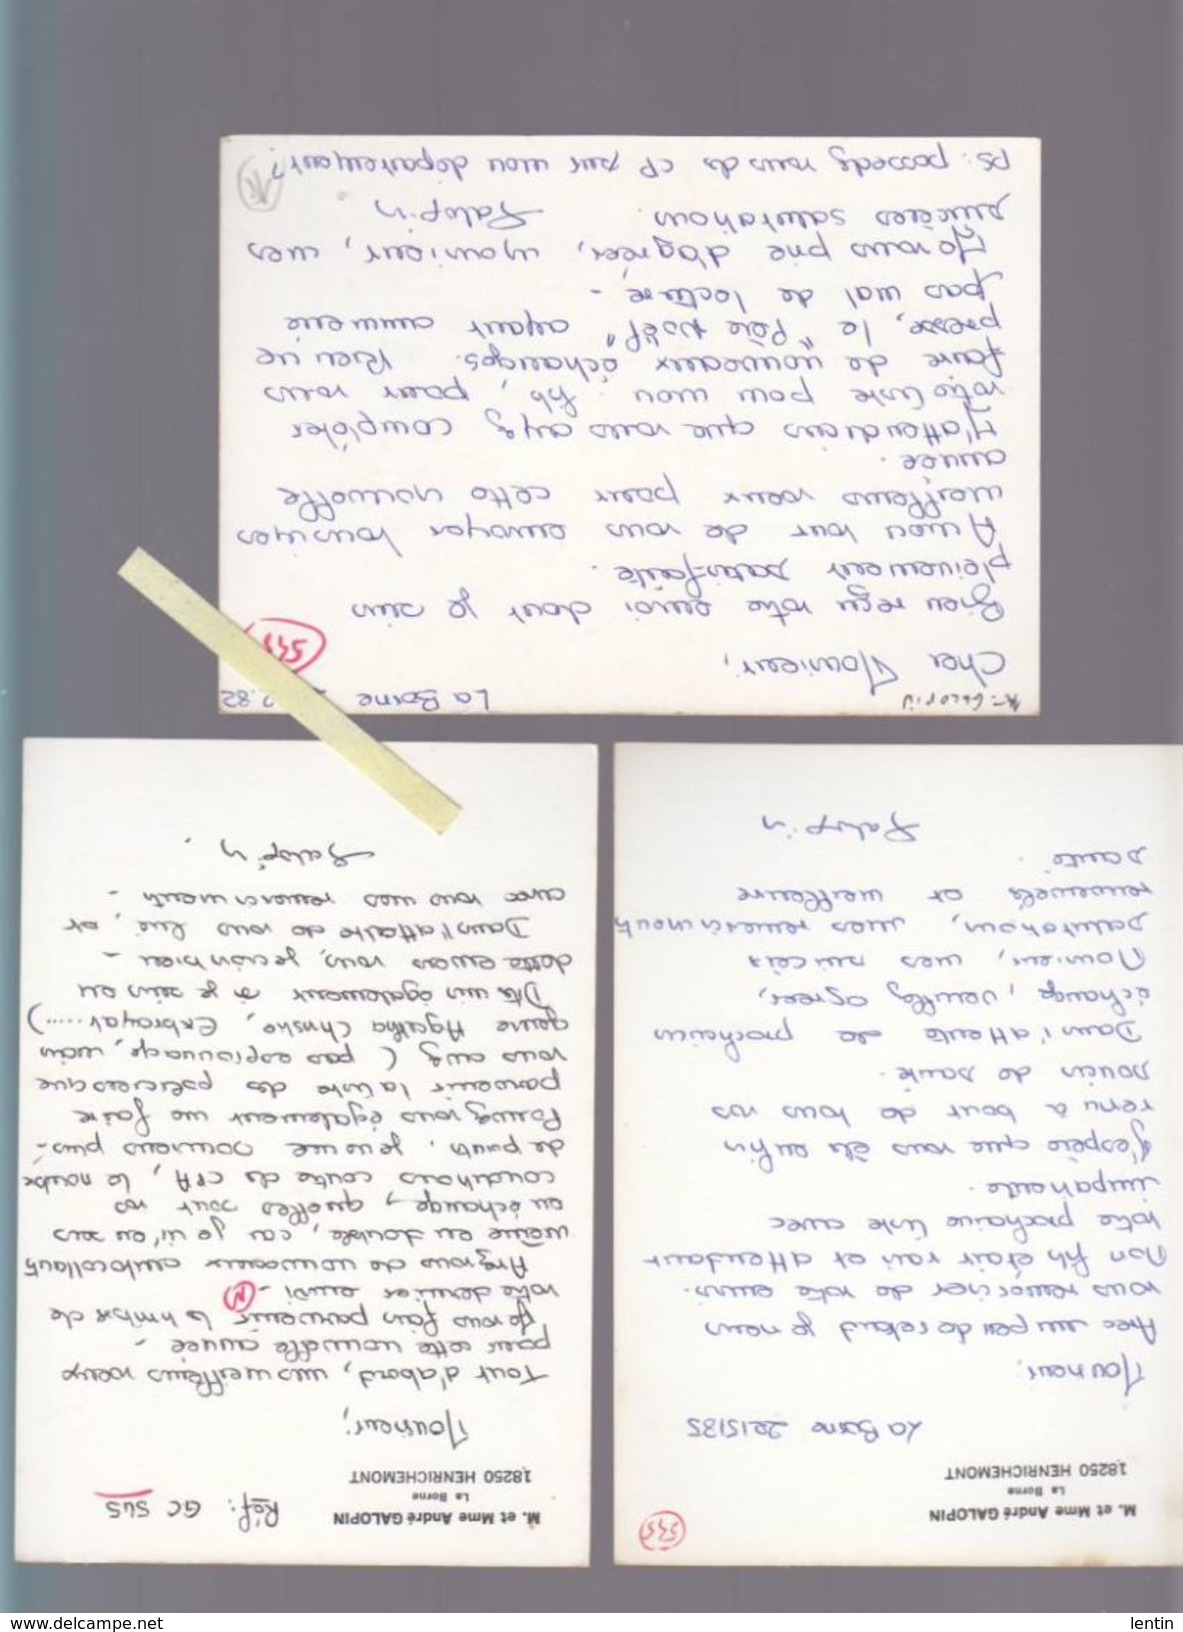 M. et Mme André GALOPIN
La Borne
18250 HENRICHEMONT
545
La Borne 22/5/85
Monsieur,
Avec un peu de retard je viens
vous remercier de votre envoi.
Mon fils était ravi et attendait
votre prochaine liste avec
impatience.
J'espère que vous êtes enfin
venu à bout de tous vos
soucis de santé.
Dans l'attente de prochains
échange, veuillez agréer,
Monsieur, mes sincères
salutations, mes remerciements
renouvelés et meilleure
santé.
Galopin
M. et Mme André GALOPIN
La Borne
18250 HENRICHEMONT
Réf: GC 545
Monsieur,
Tout d'abord, mes meilleurs voeux
pour cette nouvelle année -
Je vous fais parvenir le timbre de
votre dernier envoi -
Avez vous de nouveaux autocollants
même en double, car je n'en ai
en échange, quelles sont vos
conditions contre des CPA, le nombre
de points. Je vous
Pouvez vous également me faire
parvenir la liste des policiers que
vous avez (pas espionnage, mais
genre Agatha Christie, Exbrayat.....)
Dites moi également si je suis en
dette envers vous
Dans l'attente de vous lire, et
avec tous mes remerciements -
Galopin.
M. GALOPIN
La Borne
.82
545
Cher Monsieur,
Bien reçu votre envoi dont je suis
pleinement satisfaite.
A mon tour de vous envoyer tous mes
meilleurs voeux pour cette nouvelle
année.
J'attendais que vous ayez compléter
votre liste pour mon fils, pour vous
faire de nouveaux échanges. Rien ne
presse, le "Père Noël" ayant amené
pas mal de lecture -
Je vous prie d'agréer, monsieur, mes
sincères salutations. Galopin
PS: possédez vous des CP sur mon département?
www.delcampe.net
lentin